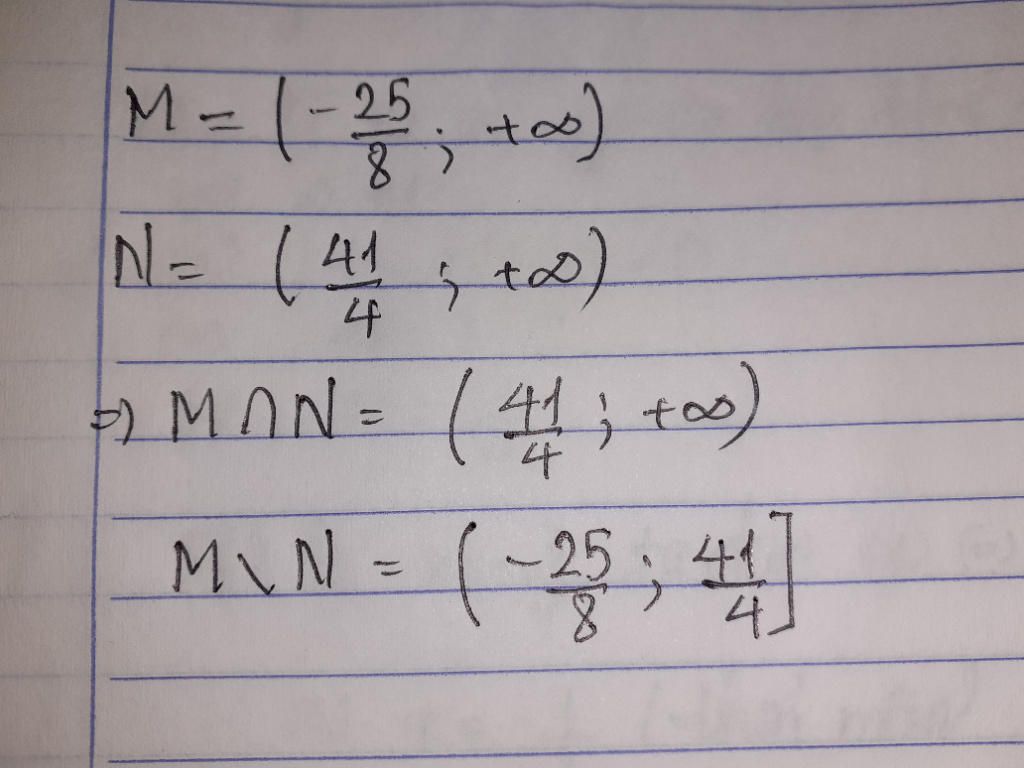 M = (-25/8 ; +∞)
N = (41/4 ; +∞)
=> M ∩ N = (41/4 ; +∞)
M \ N = (-25/8 ; 41/4]